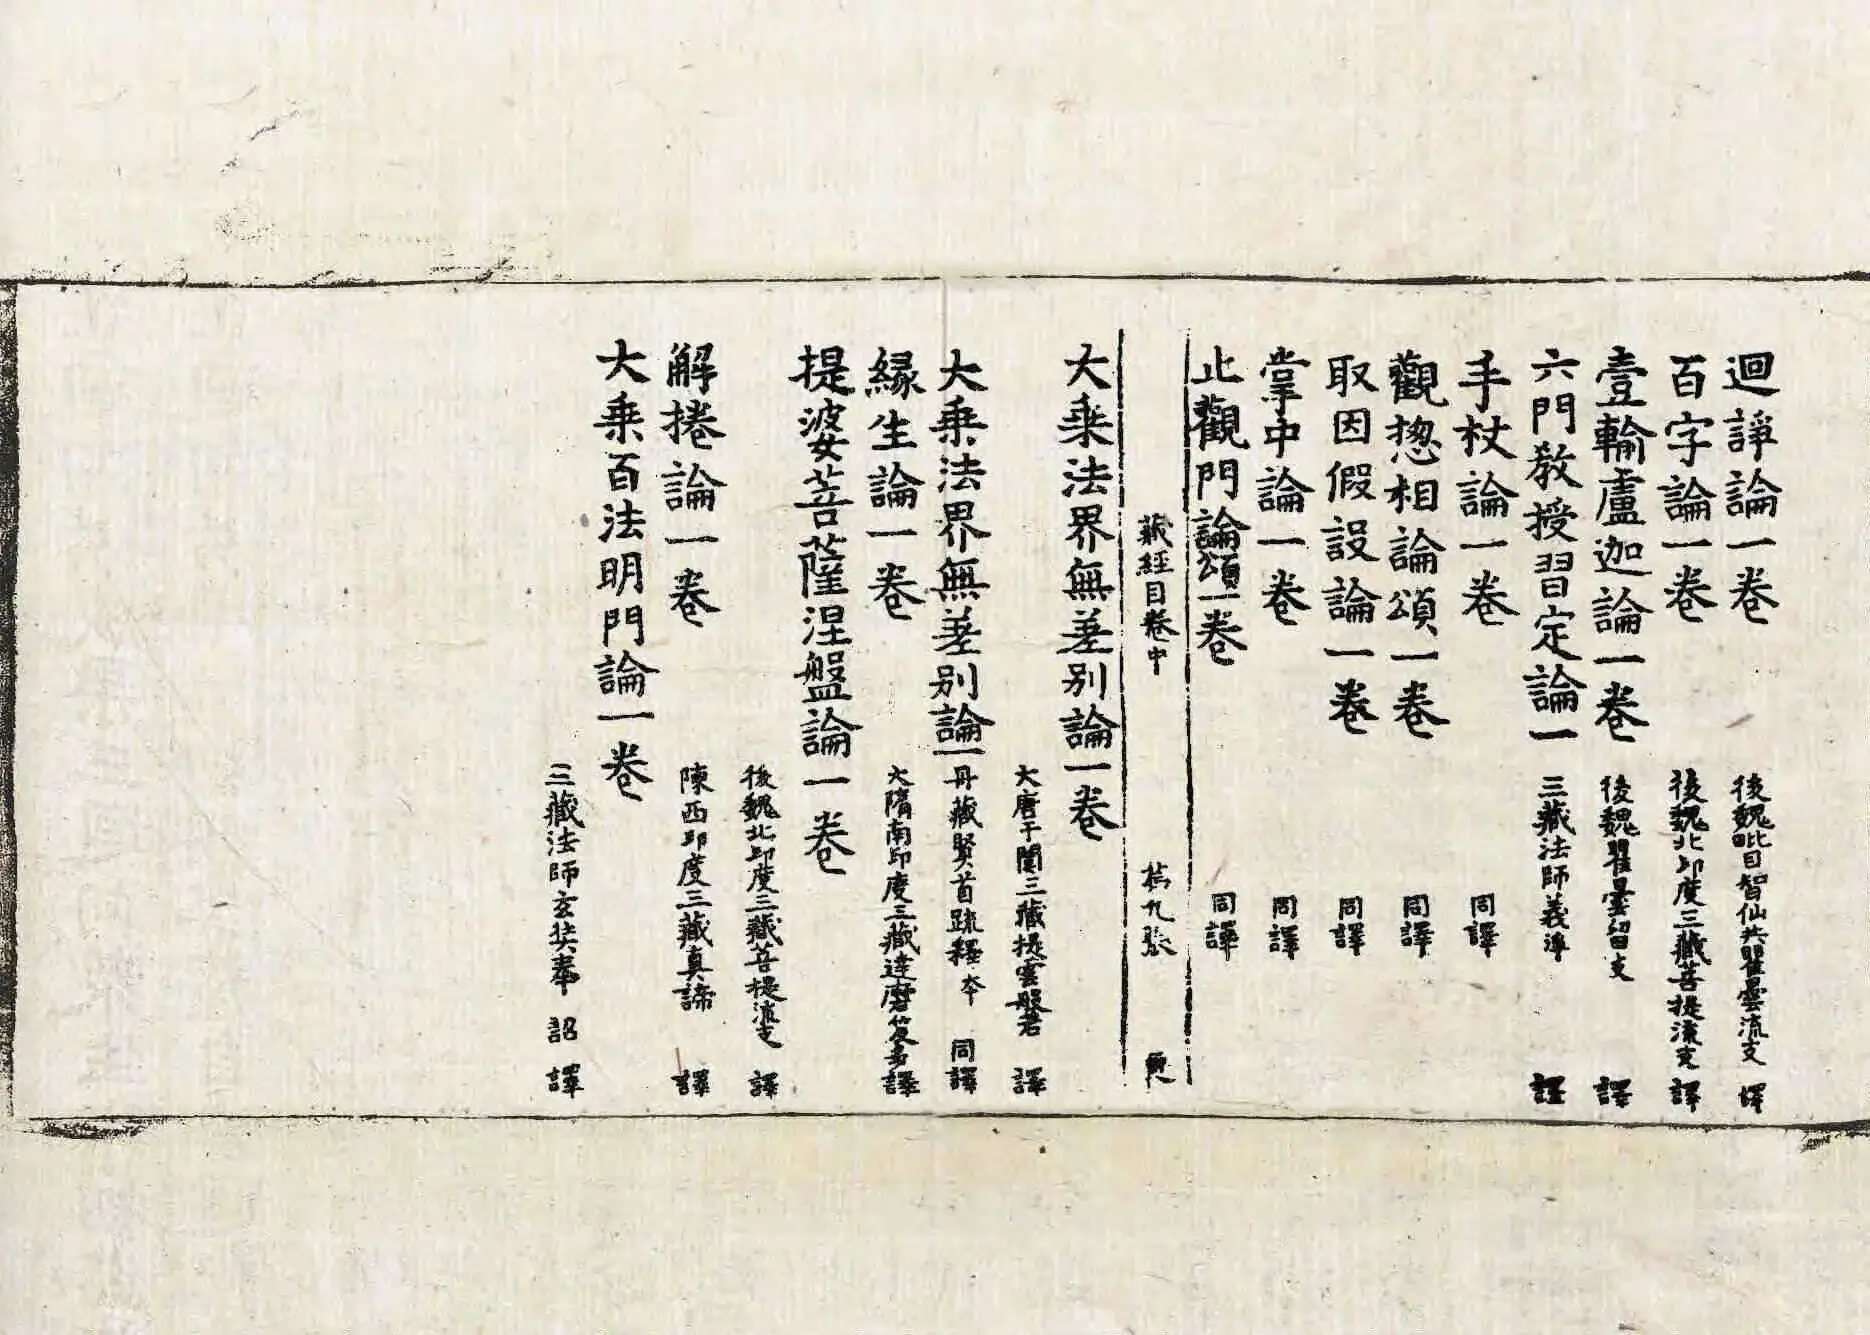 迴諍論一卷
後魏毗目智仙共瞿曇流支 譯
百字論一卷
後魏北印度三藏菩提流支 譯
壹輸盧迦論一卷
後魏瞿曇留支 譯
六門教授習定論一
三藏法師義淨 譯
手杖論一卷
同譯
觀惣相論頌一卷
同譯
取因假設論一卷
同譯
掌中論一卷
同譯
止觀門論頌一卷
同譯
藏經目卷中 九張
大乗法界無差别論一卷
大唐于闐三藏提雲般若 譯
大乗法界無差别論一
丹藏賢首䟽釋夲 同譯
縁生論一卷
大隋南印度三藏達磨笈多譯
提婆菩薩涅盤論一卷
後魏北印度三藏菩提流支 譯
解捲論一卷
陳西印度三藏真諦 譯
大乗百法明門論一卷
三藏法師玄奘奉 詔 譯